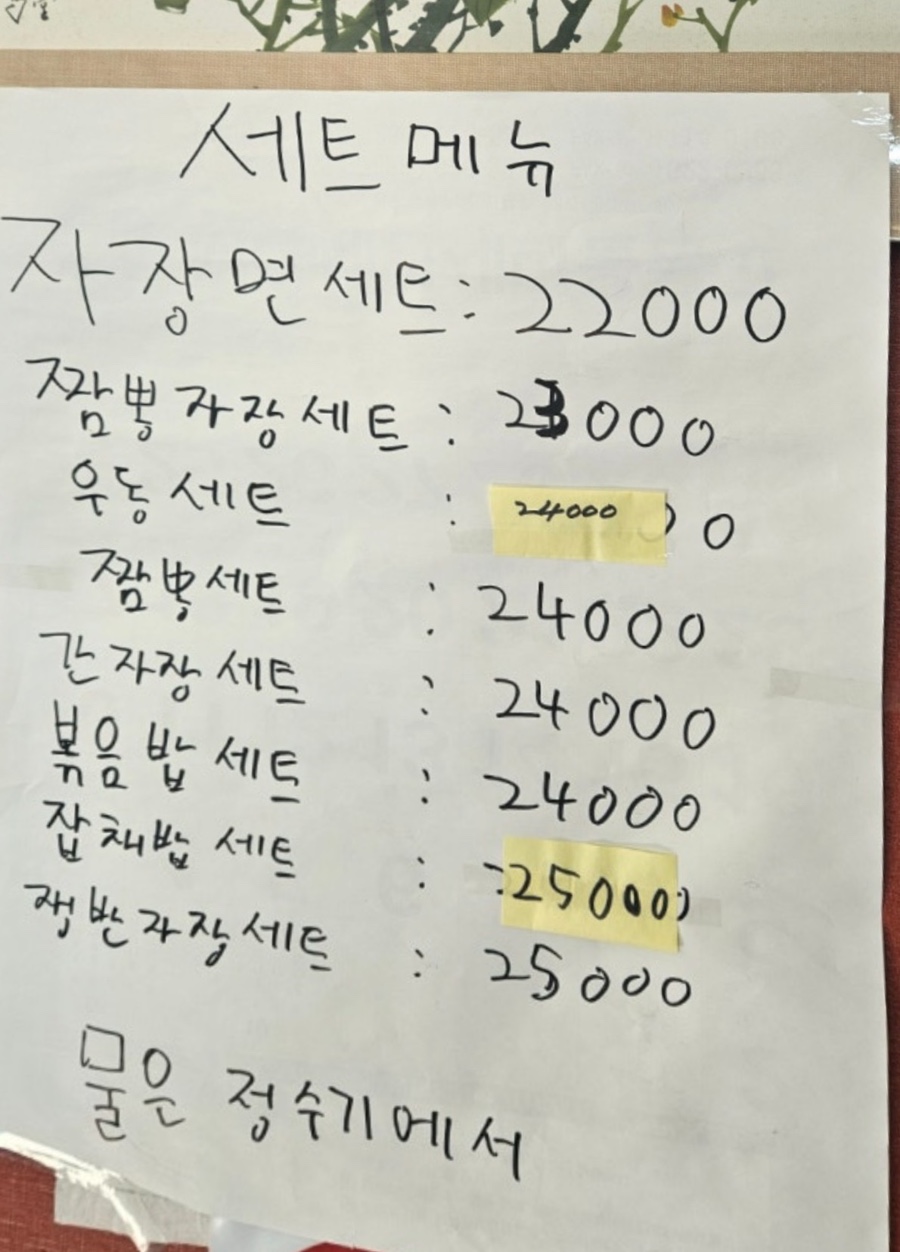 세트 메뉴
자장면 세트 : 22000
짬뽕 자장 세트 : 23000
우동 세트 : 24000
짬뽕 세트 : 24000
간자장 세트 : 24000
볶음밥 세트 : 24000
잡채밥 세트 : 25000
쟁반자장 세트 : 25000
물은 정수기에서